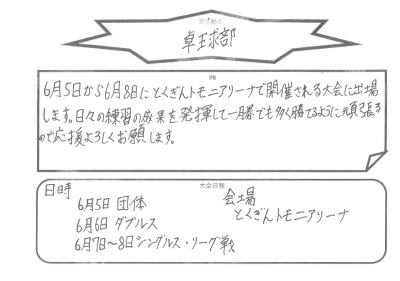 卓球部
PR
6月5日から6月8日にとくぎんトモニアリーナで開催される大会に出場
します。日々の練習の成果を発揮して一勝でも多く勝てるように頑張る
ので応援よろしくお願します。
大会日程
日時
6月5日 団体
6月6日 ダブルス
6月7日～8日シングルス・リーグ戦
会場
とくぎんトモニアリーナ